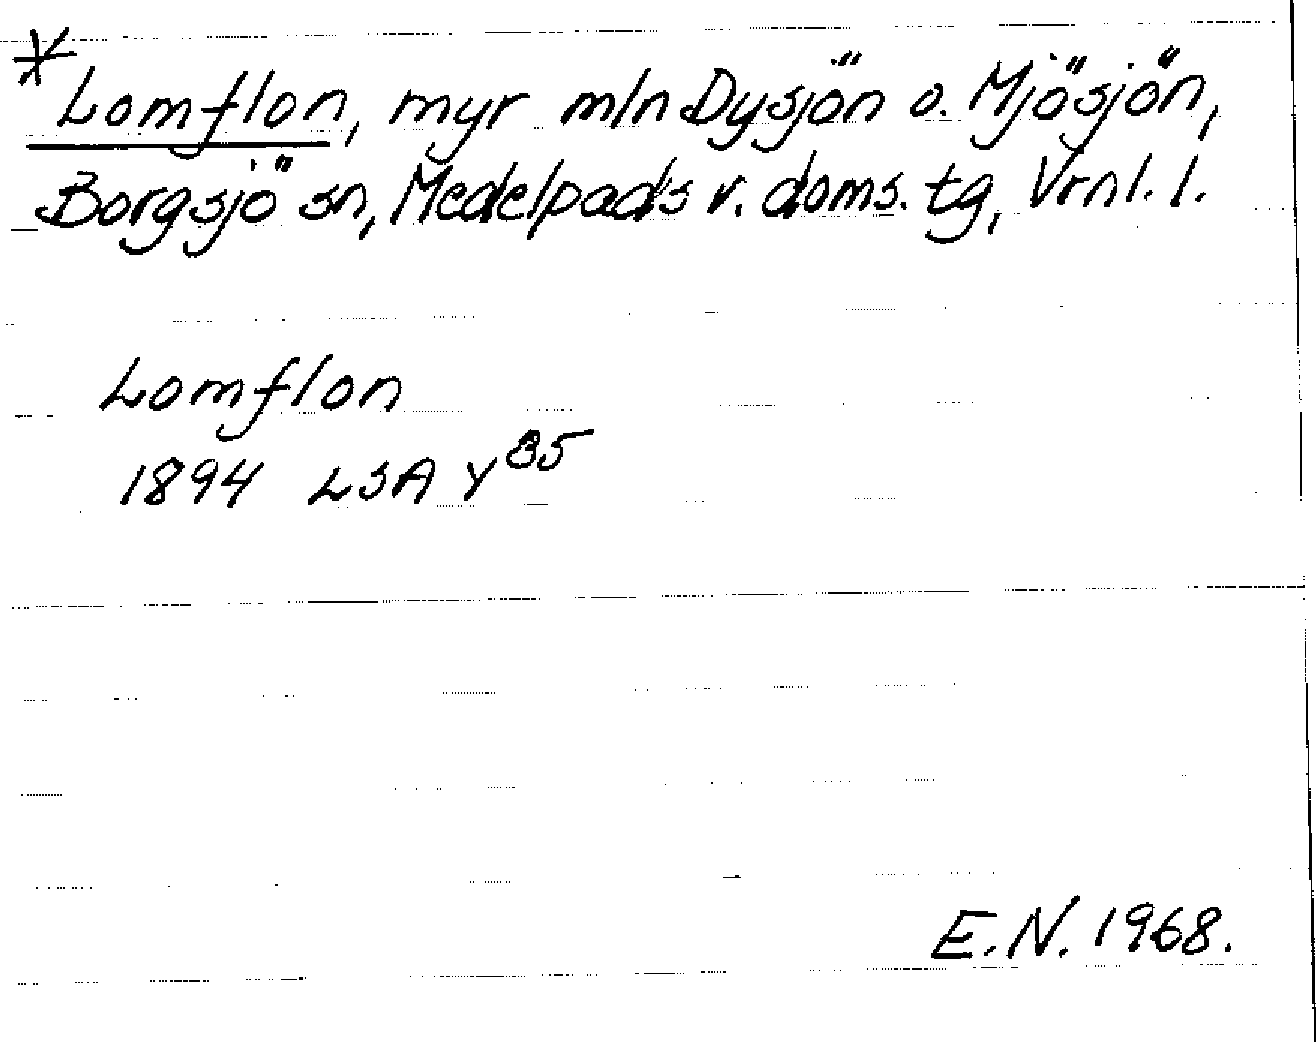 * Lomflon, myr mln Dysjön o. Mjösjön,
Borgsjö sn, Medelpads v. doms. tg, Vrnl. l.
Lomflon
1894 LSA Y 35
E.N. 1968.